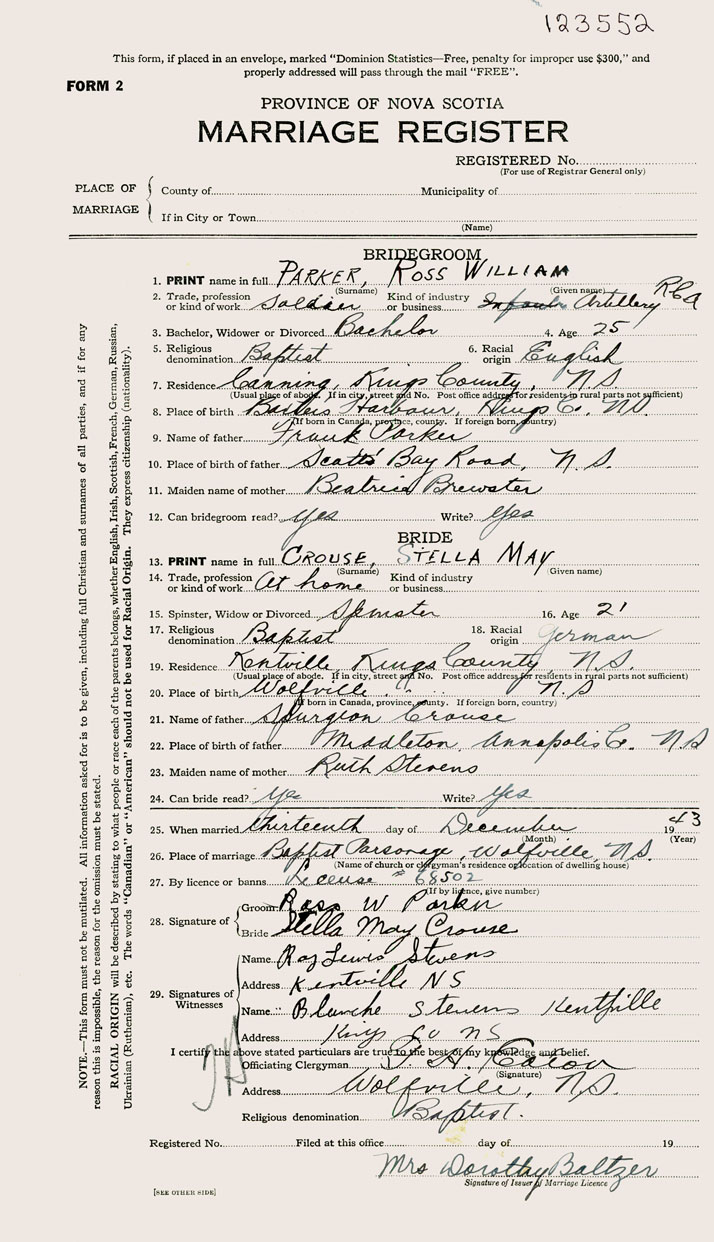 123552
This form, if placed in an envelope, marked "Dominion Statistics—Free, penalty for improper use $300," and
properly addressed will pass through the mail "FREE".
FORM 2
PROVINCE OF NOVA SCOTIA
MARRIAGE REGISTER
REGISTERED No.
(For use of Registrar General only)
PLACE OF MARRIAGE
County of Municipality of
If in City or Town
(Name)
BRIDEGROOM
1. PRINT name in full PARKER, ROSS WILLIAM
(Surname) (Given name)
2. Trade, profession or kind of work Soldier Kind of industry or business Artillery RCA
3. Bachelor, Widower or Divorced Bachelor 4. Age 25
5. Religious denomination Baptist 6. Racial origin English
7. Residence Canning, Kings County, N.S.
(Usual place of abode. If in city, street and No. Post office address for residents in rural parts not sufficient)
8. Place of birth Harbour, Kings Co. NS
(If born in Canada, province, county. If foreign born, country)
9. Name of father Frank Parker
10. Place of birth of father Scotts Bay Road, N.S.
11. Maiden name of mother Beatrice Brewster
12. Can bridegroom read? Yes Write? Yes
BRIDE
13. PRINT name in full CROUSE, STELLA MAY
(Surname) (Given name)
14. Trade, profession or kind of work At home Kind of industry or business
15. Spinster, Widow or Divorced Spinster 16. Age 21
17. Religious denomination Baptist 18. Racial origin German
19. Residence Kentville, Kings County, N.S.
(Usual place of abode. If in city, street and No. Post office address for residents in rural parts not sufficient)
20. Place of birth Wolfville N.S
(If born in Canada, province, county. If foreign born, country)
21. Name of father Spurgeon Crouse
22. Place of birth of father Middleton, Annapolis Co. NS
23. Maiden name of mother Ruth Stevens
24. Can bride read? Yes Write? Yes
25. When married thirteenth day of December 1943
(Month) (Year)
26. Place of marriage Baptist Parsonage, Wolfville, N.S.
(Name of church or clergyman's residence or location of dwelling house)
27. By licence or banns License # 68502
(If by licence, give number)
28. Signature of
Groom Ross W Parker
Bride Stella May Crouse
29. Signatures of Witnesses
Name Ray Lewis Stevens
Address Kentville NS
Name Blanche Stevens Kentville
Address Kings Co NS
I certify the above stated particulars are true to the best of my knowledge and belief.
Officiating Clergyman Eaton
(Signature)
Address Wolfville, N.S.
Religious denomination Baptist.
Registered No. Filed at this office day of 19
Mrs Dorothy Baltzer
Signature of Issuer of Marriage Licence
[SEE OTHER SIDE]
NOTE.—This form must not be mutilated. All information asked for is to be given, including full Christian and surnames of all parties, and if for any
reason this is impossible, the reason for the omission must be stated.
RACIAL ORIGIN will be described by stating to what people or race each of the parents belongs, whether English, Irish, Scottish, French, German, Russian,
Ukrainian (Ruthenian), etc. The words "Canadian" or "American" should not be used for Racial Origin. They express citizenship (nationality).